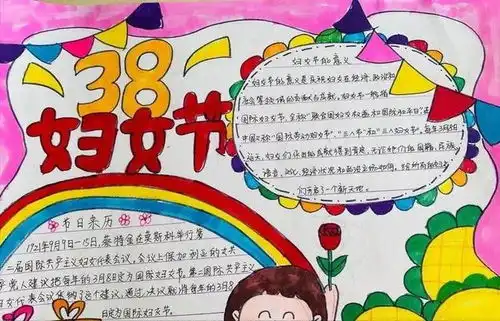 38
妇女节
妇女节的意义
妇女节的意义是庆祝妇女在经济、政治和
社会等领域的贡献与成就。妇女节一般指
国际妇女节，全称"联合国妇女权益和国际和平日"，在
中国又称"国际劳动妇女节"、"三八节"和"三八妇女节"，每年3月8日
这天，妇女们所做的成就得到肯定，无论她们的国籍、民族、
语言、文化、经济状况和政治主张如何，给所有的妇女
们开启了一个新天地。
节日来历
1921年9月9日-15日，蔡特金在莫斯科举行第
二届国际共产主义妇女代表会议，会议上保加利亚的女共
产党人建议把每年的3月8日定为国际妇女节。第二国际共产主义
妇女代表会议采纳了这个建议，通过决议就将每年的3月8
日定为国际妇女节。